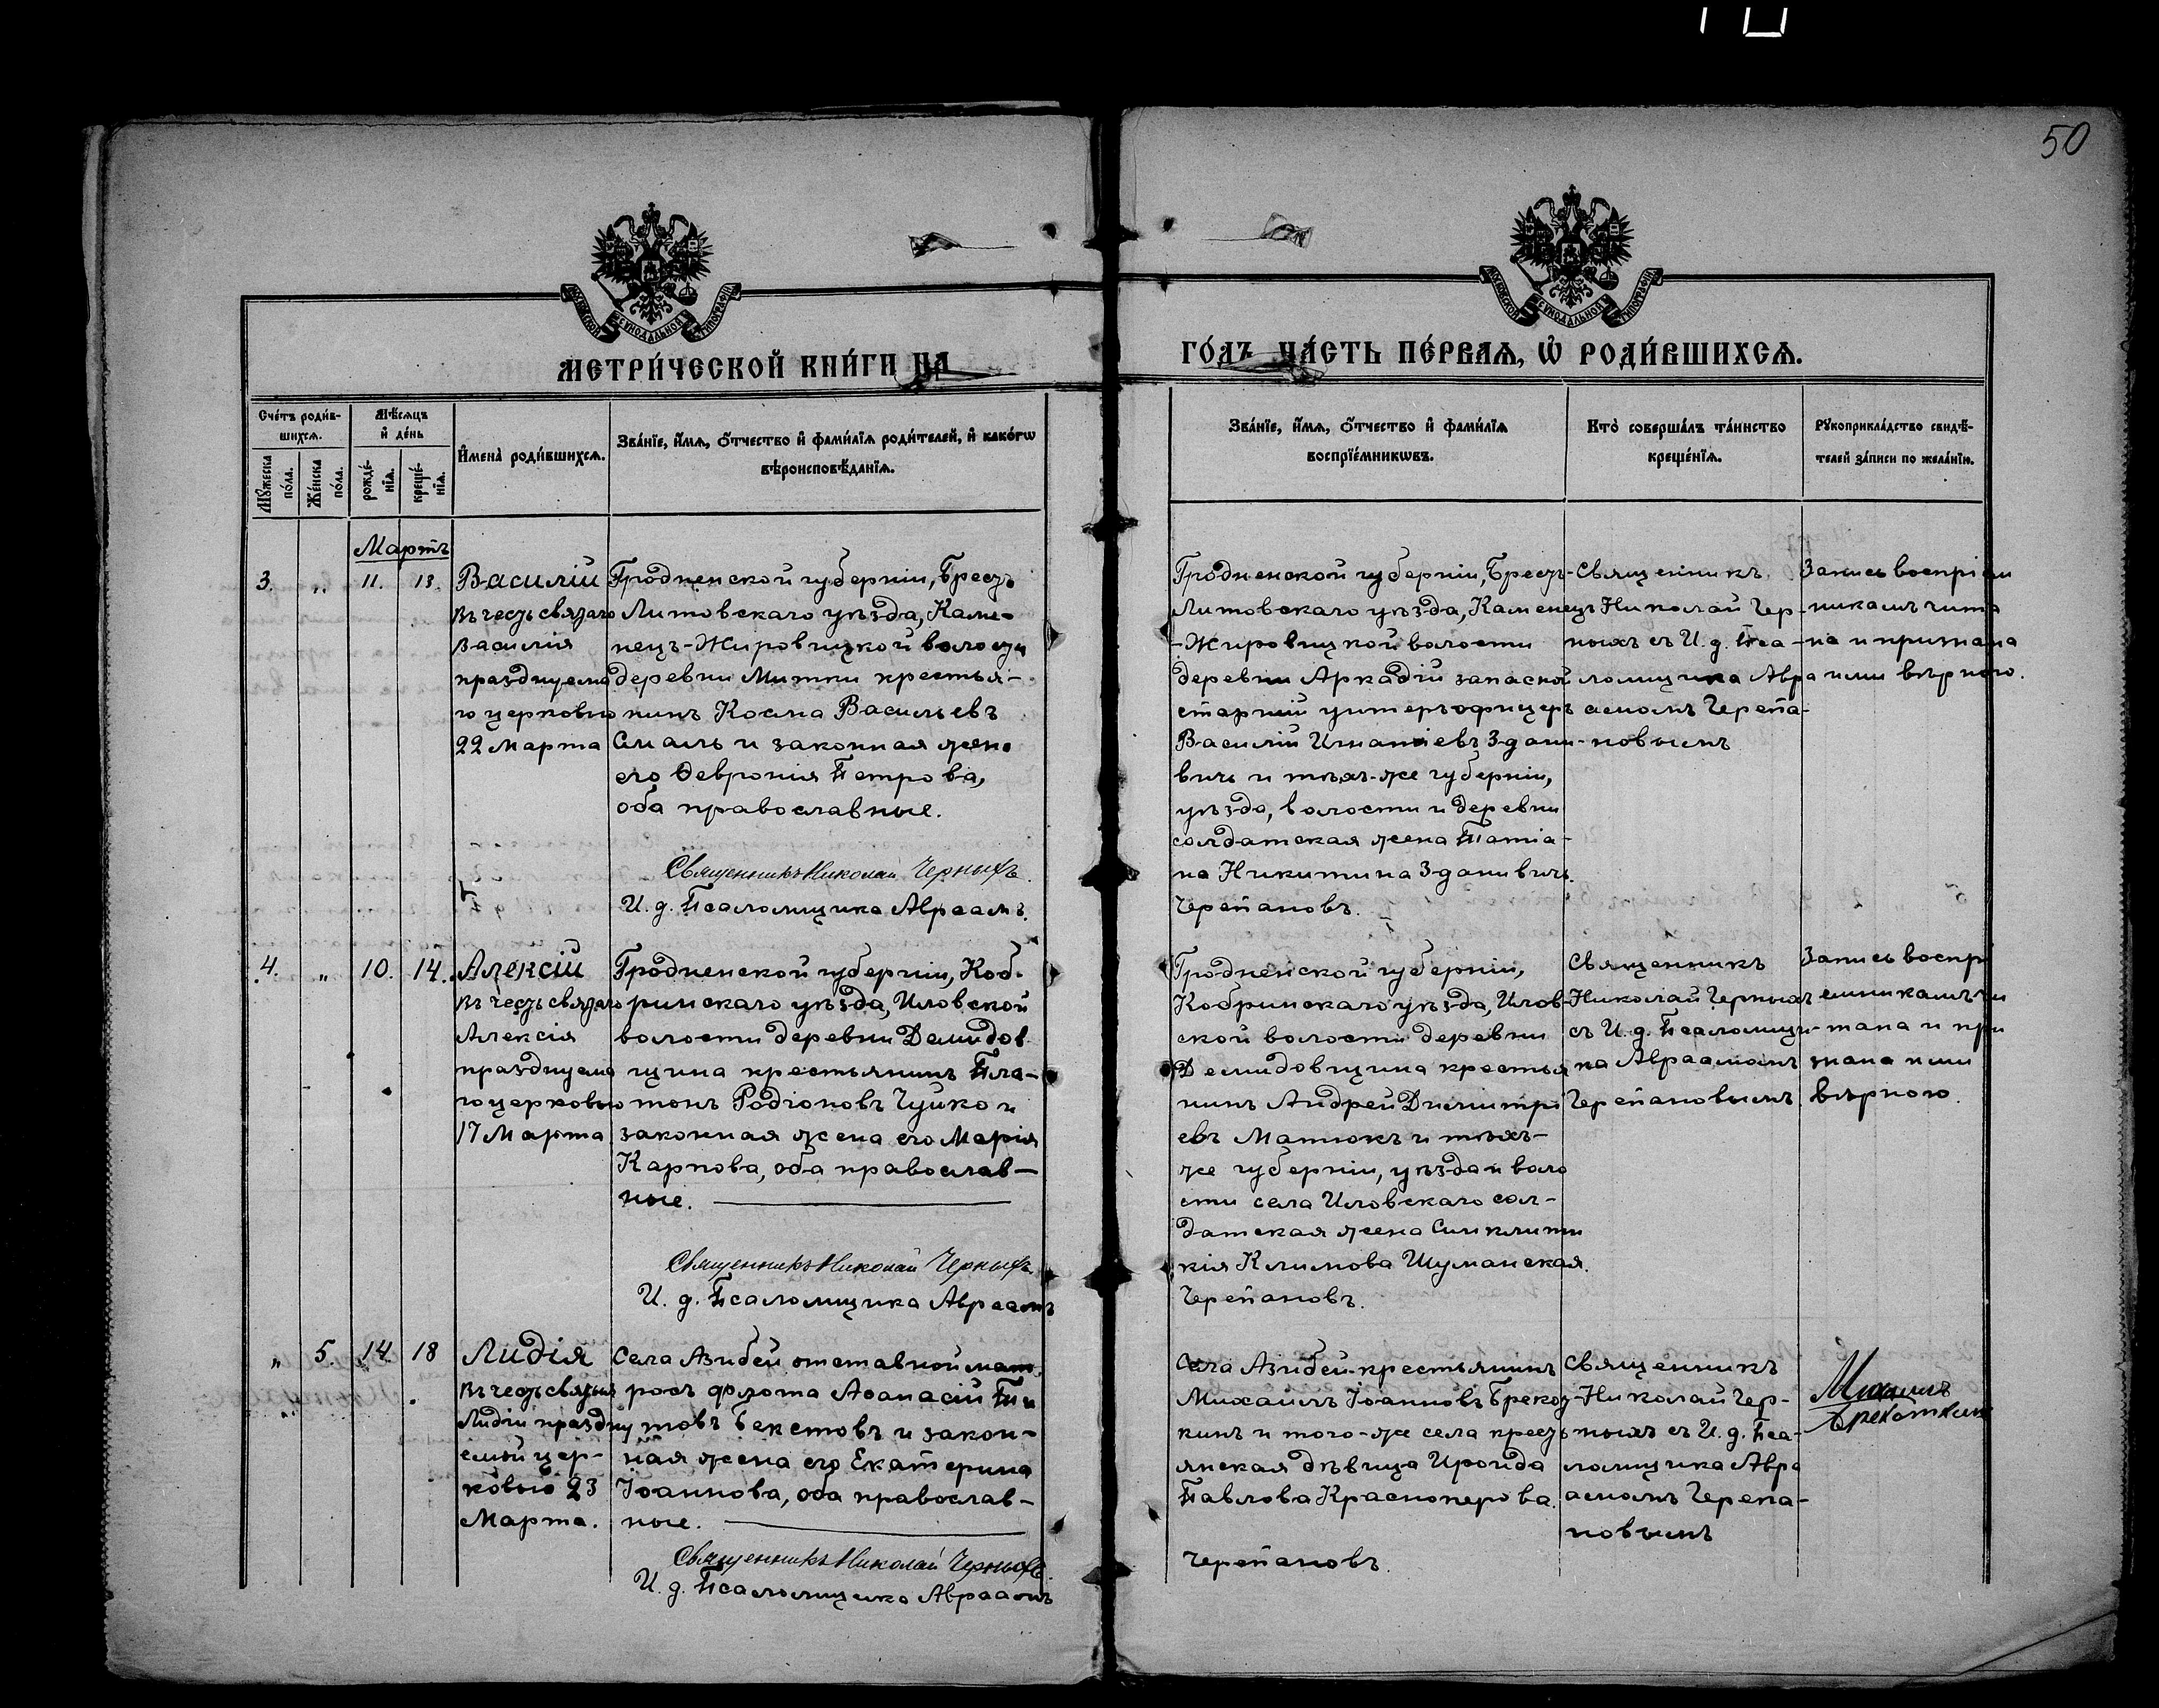 50
МОСКОВСКОЙ СѴНОДАЛЬНОЙ ТИПОГРАФІИ
МОСКОВСКОЙ СѴНОДАЛЬНОЙ ТИПОГРАФІИ
МЕТРИ́ЧЕСКОЙ КНИ́ГИ НА
ГО́ДЪ ЧА́СТЬ ПЕ́РВАѦ, Ѡ҆ РОДИ́ВШИХСѦ.
Сче́тъ роди́в-
шихсѧ.
Мꙋ́жеска
по́ла.
Же́нска
по́ла.
Мѣ́сѧцъ
и҆ де́нь
рожде́-
нїѧ.
креще́-
нїѧ.
И҆мена̀ роди́вшихсѧ.
Зва́нїе, и҆́мѧ, ѻ҆́тчество и҆ фами́лїѧ роди́телей, и҆ како́гѡ
вѣроисповѣ́данїѧ.
Зва́нїе, и҆́мѧ, ѻ҆́тчество и҆ фами́лїѧ
воспрїе́мникѡвъ.
Кто̀ соверша́лъ та́инство
креще́нїѧ.
Рꙋкоприкла́дство свидѣ́-
телей за́писи по жела́нїю.
Мартъ
3.
„
11.
13.
Василій
въ честь святаго
Василія
празднуема
го церковью
22 Марта
Гродненской губерніи, Брестъ
Литовскаго уѣзда, Каме-
нецъ-Жировицкой волости
деревни Митки крестья-
нинъ Косма Васильевъ
Смаль и законная жена
его Февронія Петрова,
оба православные.
Священникъ Николай Черныхъ.
И. д. Псаломщика Авраамъ
Гродненской губерніи, Брестъ-
Литовскаго уѣзда, Каменецъ
-Жировицкой волости
деревни Аркадій запасной
старшій унтеръ-офицеръ
Василій Игнатіевъ Здани-
вичъ и тѣхъ-же губерніи,
уѣзда, волости и деревни
солдатская жена Татіа-
на Никитина Зданивичъ.
Черепановъ.
Священникъ
Николай Чер-
ныхъ съ И. д. Пса-
ломщика Авра
амомъ Черепа-
новымъ
Запись воспріем
никамъ чита
на и признана
ими вѣрною.
4.
„
10.
14.
Алексій
въ честь святаго
Алексія
празднуема
го церковью
17 Марта
Гродненской губерніи, Коб-
ринскаго уѣзда, Иловской
волости деревни Демидов
щина крестьянинъ Пла-
тонъ Родіоновъ Чуйко и
законная жена его Марія
Карпова, оба православ-
ные.
Священникъ Николай Черныхъ.
И. д. Псаломщика Авраамъ
Гродненской губерніи,
Кобринскаго уѣзда, Илов-
ской волости деревни
Демидовщина крестья
нинъ Андрей Димитрі
евъ Матюкъ и тѣхъ-
же губерніи, уѣзда и воло
сти села Иловскаго сол-
датская жена Синклити
кія Климова Шуманская.
Черепановъ.
Священникъ
Николай Черныхъ
съ И. д. Псаломщи-
ка Авраамомъ
Черепановымъ.
Запись воспрі
емникамъ чи
тана и при
знана ими
вѣрною.
„
5.
14.
18
Лидія
въ честь святыя
Лидіи праздну
емой цер-
ковью 23
Марта.
Села Азибей отставной мат-
росъ флота Аѳанасій Ти
товъ Бекетовъ и закон-
ная жена его Екатерина
Іоаннова, оба православ-
ные.
Священникъ Николай Черныхъ.
И. д. Псаломщика Авраамъ
Села Азибей крестьянинъ
Михаилъ Іоанновъ Брекот
кинъ и того-же села кресть
янская дѣвица Ироида
Павлова Красноперова.
Черепановъ.
Священникъ
Николай Чер-
ныхъ съ И. д. Пса-
ломщика Авра
амомъ Черепа-
новымъ
Михаилъ
Брекоткинъ